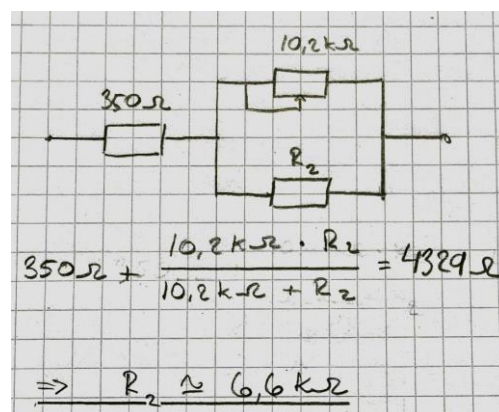 10,2 kΩ
350 Ω
R₂
350 Ω + (10,2 kΩ · R₂) / (10,2 kΩ + R₂) = 4329 Ω
⇒ R₂ ≃ 6,6 kΩ